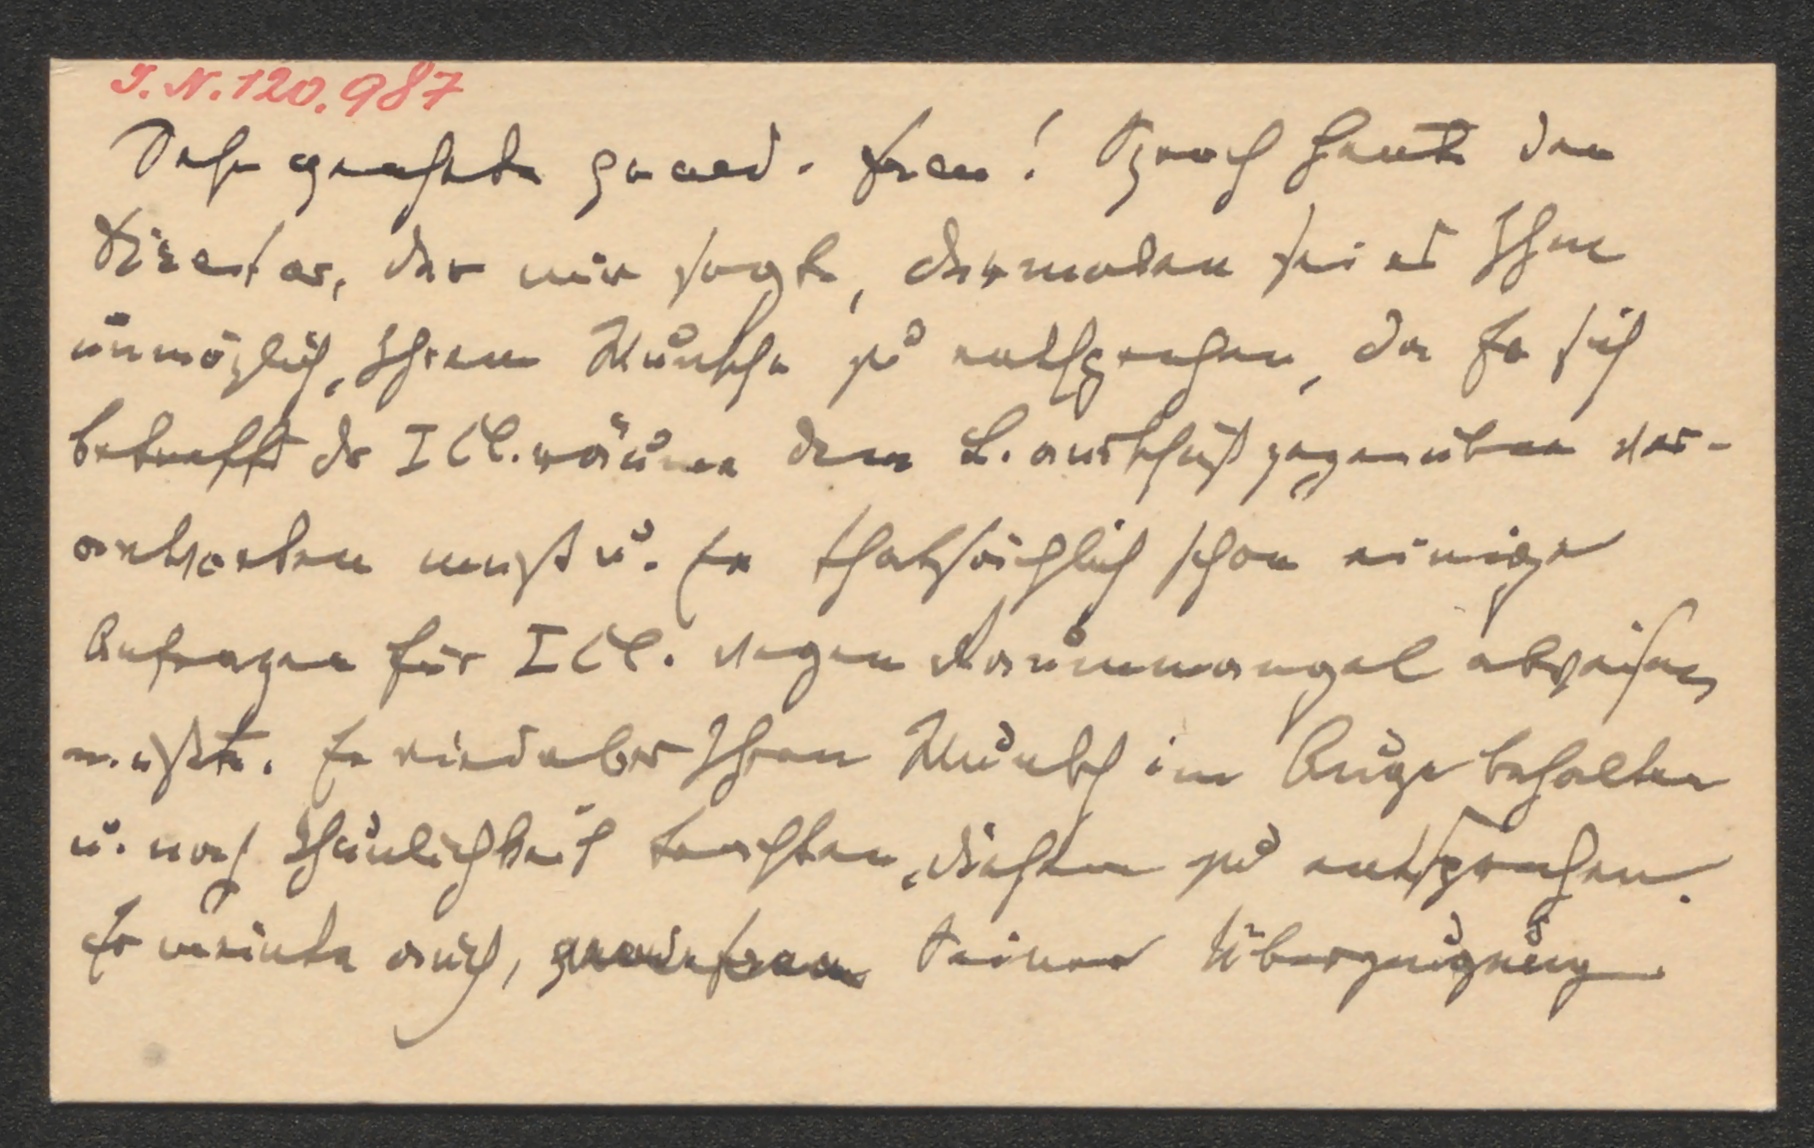 I. N. 120.987
Sehr geehrte gnaed. Frau! Sprach heute den
Director, der mir sagte, dermalen sei es Ihm
unmöglich, Ihrem Wunsche zu entsprechen, da Er sich
betreffs der I Cl. räume dem L. ausschuß gegenüber ver-
antworten muß u. Er thatsächlich schon einige
Anfragen für I Cl. wegen Raummangel abweisen
mußte. Er wird aber Ihren Wunsch im Auge behalten
u. nach Thunlichkeit trachten, diesem zu entsprechen.
Er meinte auch, seiner Überzeugung